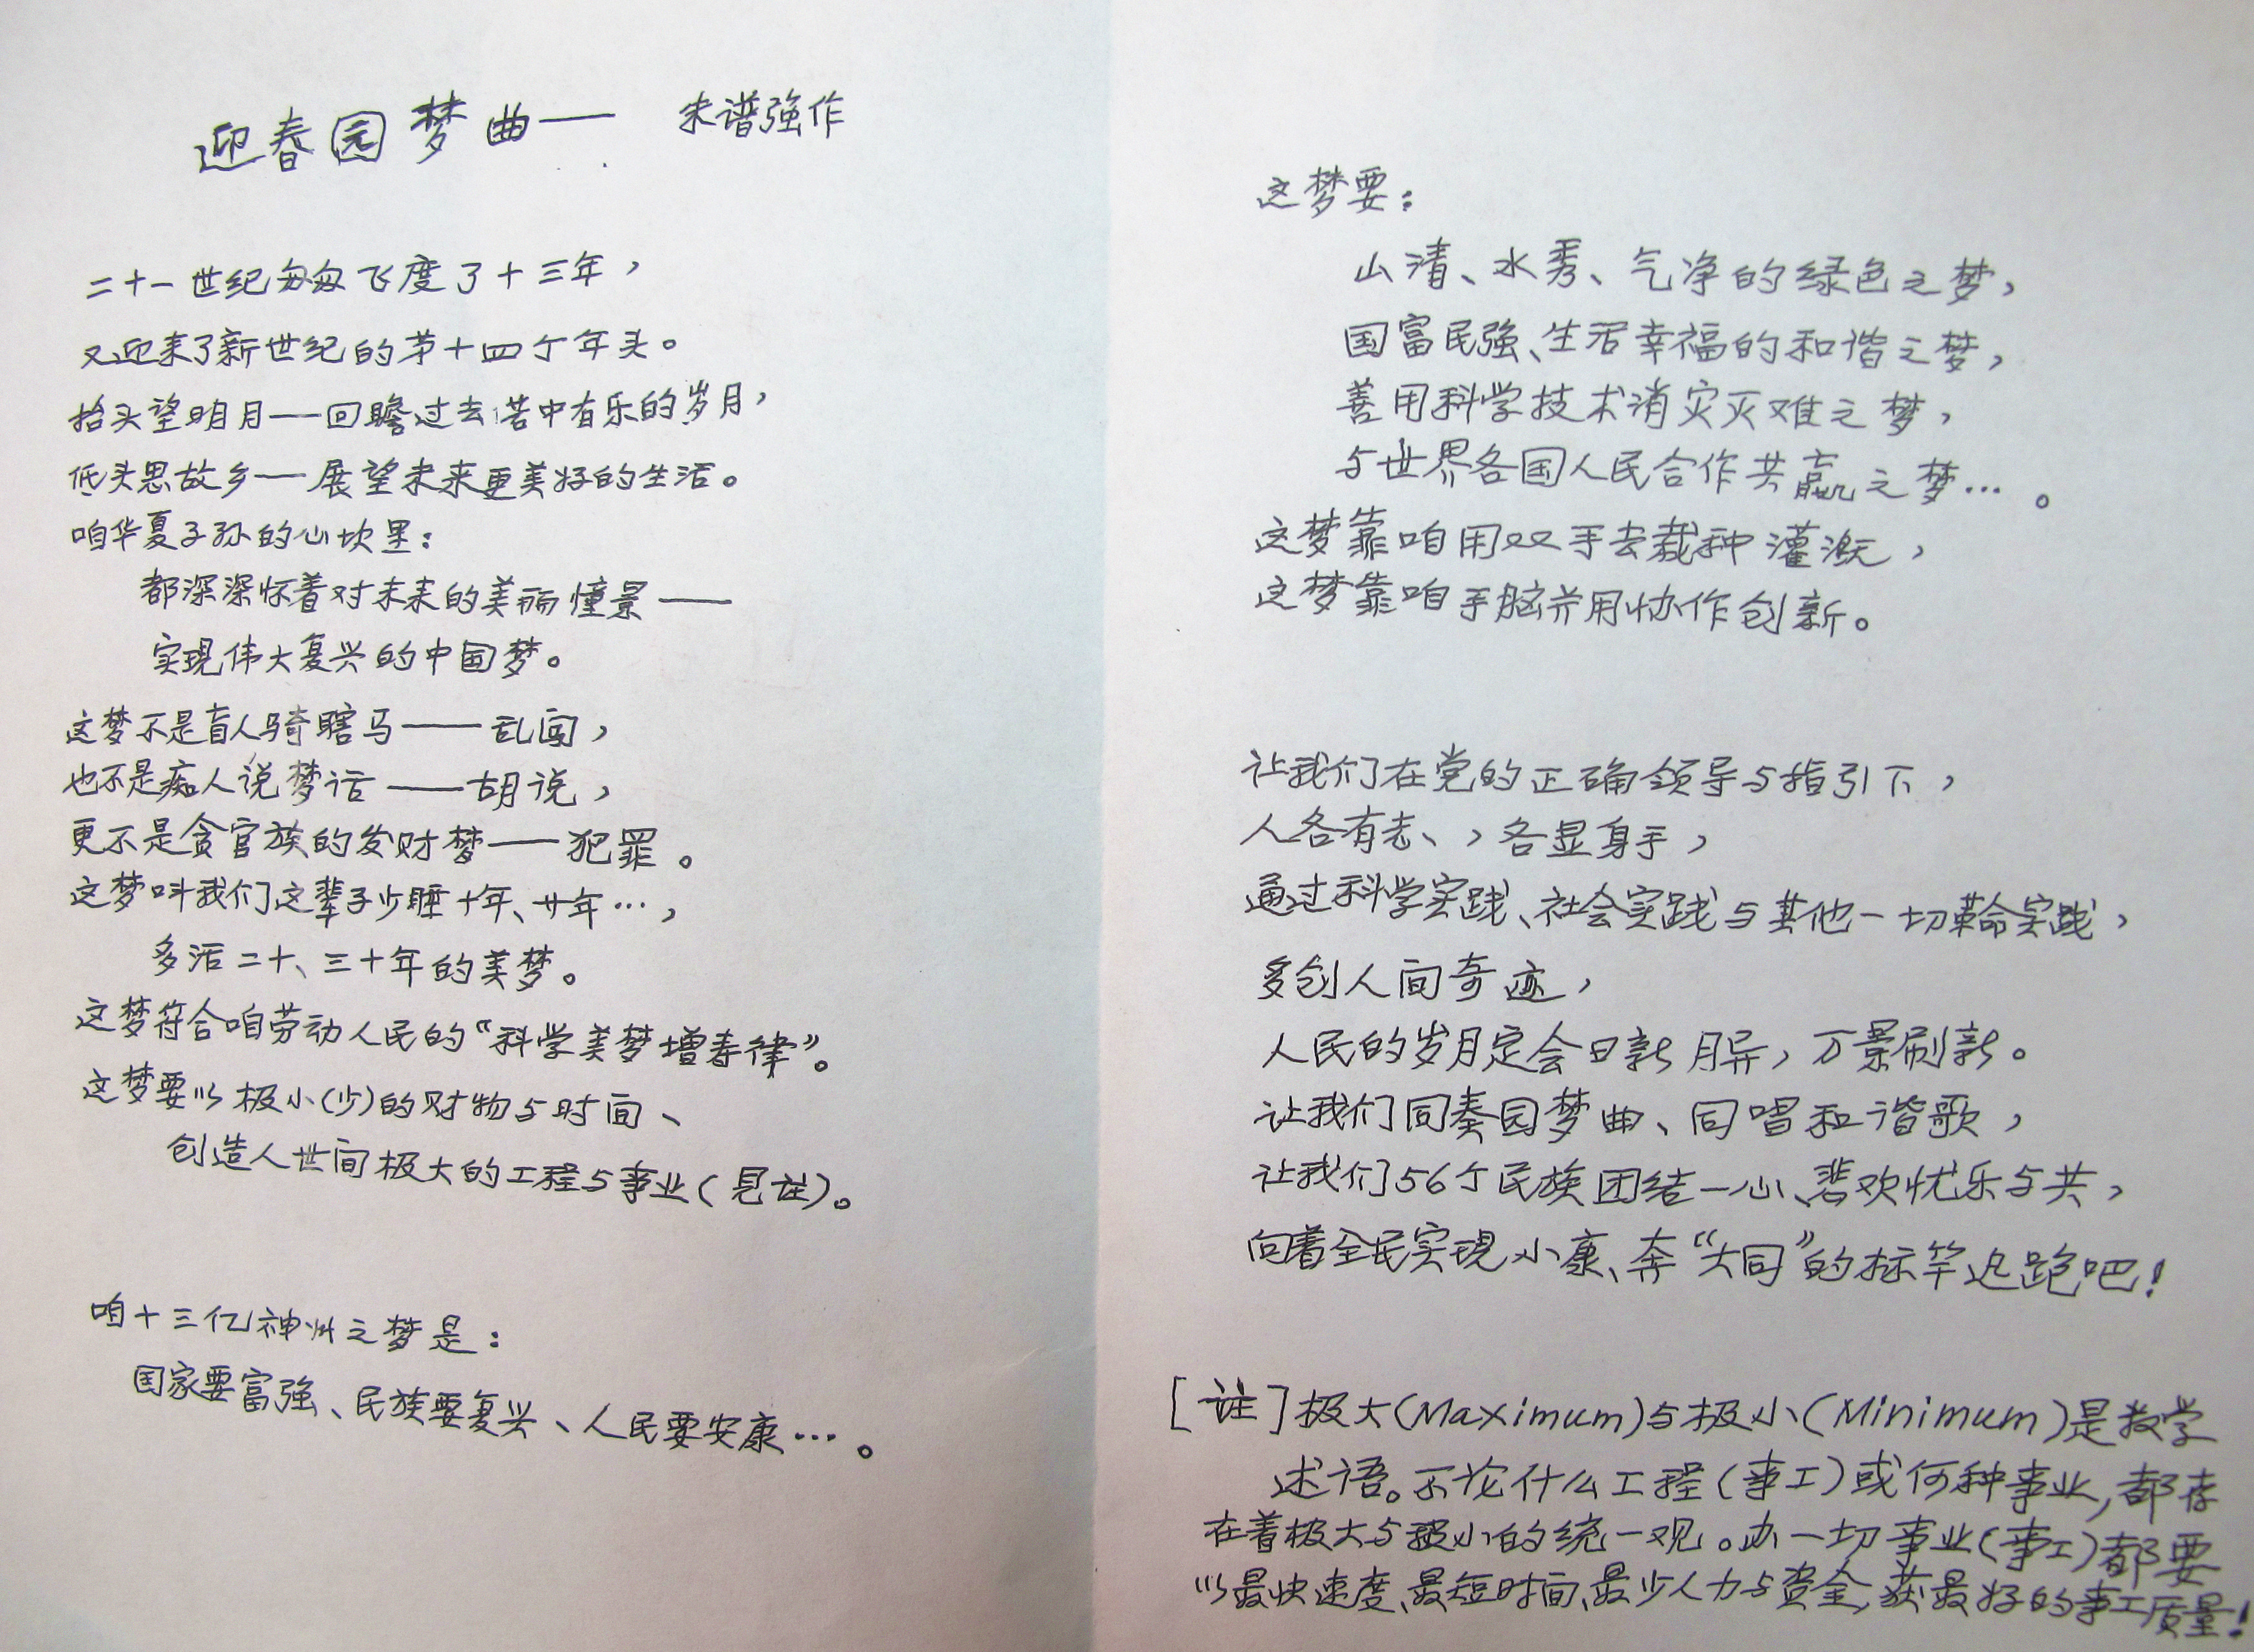 迎春园梦曲—— 朱谱强作
二十一世纪匆匆飞度了十三年，
又迎来了新世纪的第十四个年头。
抬头望明月——回瞻过去苦中有乐的岁月，
低头思故乡——展望未来更美好的生活。
咱华夏子孙的心坎里：
都深深怀着对未来的美丽憧景——
实现伟大复兴的中国梦。
这梦不是盲人骑瞎马——乱闯，
也不是痴人说梦话——胡说，
更不是贪官族的发财梦——犯罪。
这梦叫我们这辈子少睡十年、廿年…，
多活二十、三十年的美梦。
这梦符合咱劳动人民的“科学美梦增寿律”。
这梦要以极小(少)的财物与时间、
创造人世间极大的工程与事业(見註)。
咱十三亿神州之梦是：
国家要富强、民族要复兴、人民要安康…。
这梦要：
山清、水秀、气净的绿色之梦，
国富民强、生活幸福的和谐之梦，
善用科学技术消灾灭难之梦，
与世界各国人民合作共赢之梦…。
这梦靠咱用双手去栽种灌溉，
这梦靠咱手脑并用协作创新。
让我们在党的正确领导与指引下，
人各有志、，各显身手，
通过科学实践、社会实践与其他一切革命实践，
多创人间奇迹，
人民的岁月定会日新月异，万景刷新。
让我们同奏园梦曲、同唱和谐歌，
让我们56个民族团结一心、悲欢忧乐与共，
向着全民实現小康、奔“大同”的标竿迅跑吧！
[註]极大(Maximum)与极小(Minimum)是数学
述语。不论什么工程(事工)或何种事业，都存
在着极大与极小的统一观。办一切事业(事工)都要
以最快速度、最短时间、最少人力与资金，获最好的事工质量！